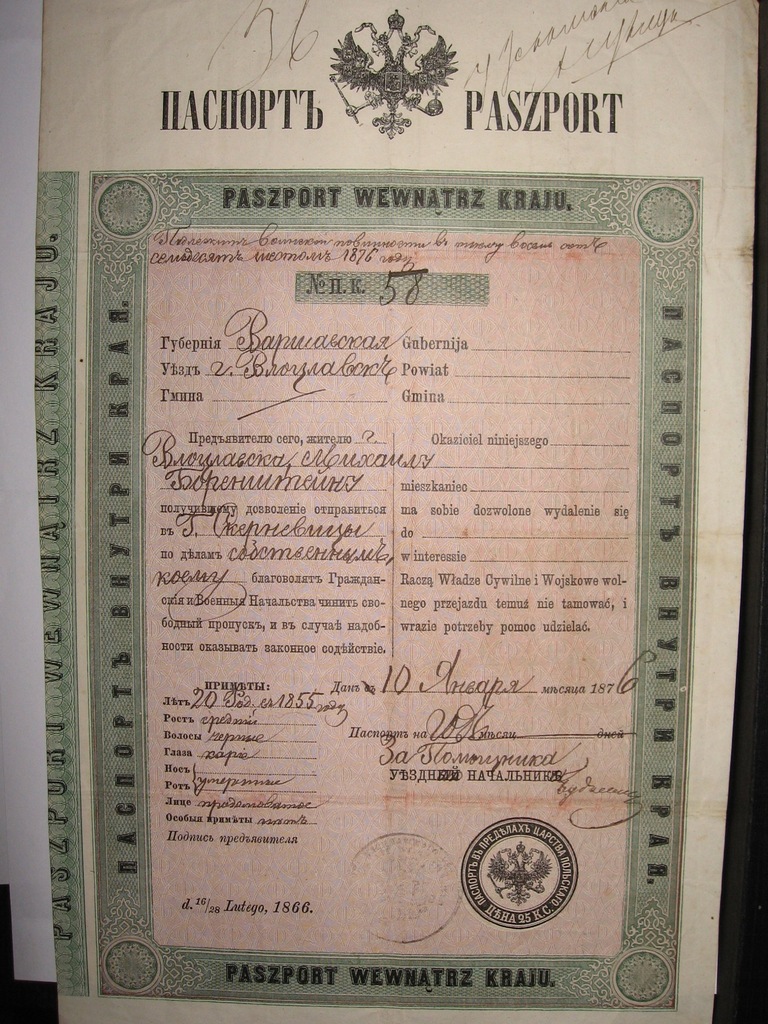 36
ПАСПОРТЪ PASZPORT
PASZPORT WEWNĄTRZ KRAJU.
Подлежитъ воинской повинности въ тысяча восемь сотъ
семьдесятъ шестомъ 1876 году
№ П. К. 58
Губернія Варшавская Gubernija
Уѣздъ г. Влоцлавскъ Powiat
Гмина Gmina
Предъявителю сего, жителю г. Okaziciel niniejszego
Влоцлавска, Михаилу
Боренштейну mieszkaniec
получившему дозволеніе отправиться ma sobie dozwolone wydalenie się
въ Г. Скерневицы do
по дѣламъ собственнымъ, w interessie
коему благоволятъ Граждан- Raczą Władze Cywilne i Wojskowe wol-
скія и Военныя Начальства чинить сво- nego przejazdu temuż nie tamować, i
бодный пропускъ, и въ случаѣ надоб- wrazie potrzeby pomoc udzielać.
ности оказывать законное содѣйствіе.
ПРИМѢТЫ: Данъ 10 Января мѣсяца 1876
Лѣтъ 20 род. въ 1855 году
Ростъ средній Паспортъ на годъ мѣсяц дней
Волосы черные
Глаза каріе За Помощника
Носъ УѢЗДНЫЙ НАЧАЛЬНИКЪ
Ротъ умеренные
Лице продолговатое
Особыя примѣты нѣтъ
Подпись предъявителя
d. 16/28 Lutego, 1866.
ПАСПОРТЪ ВЪ ПРЕДѢЛАХЪ ЦАРСТВА ПОЛЬСКАГО
ЦѢНА 25 К.С.
PASZPORT WEWNĄTRZ KRAJU.
ПАСПОРТЪ ВНУТРИ КРАЯ.
ПАСПОРТЪ ВНУТРИ КРАЯ.
PASZPORT WEWNĄTRZ KRAJU.